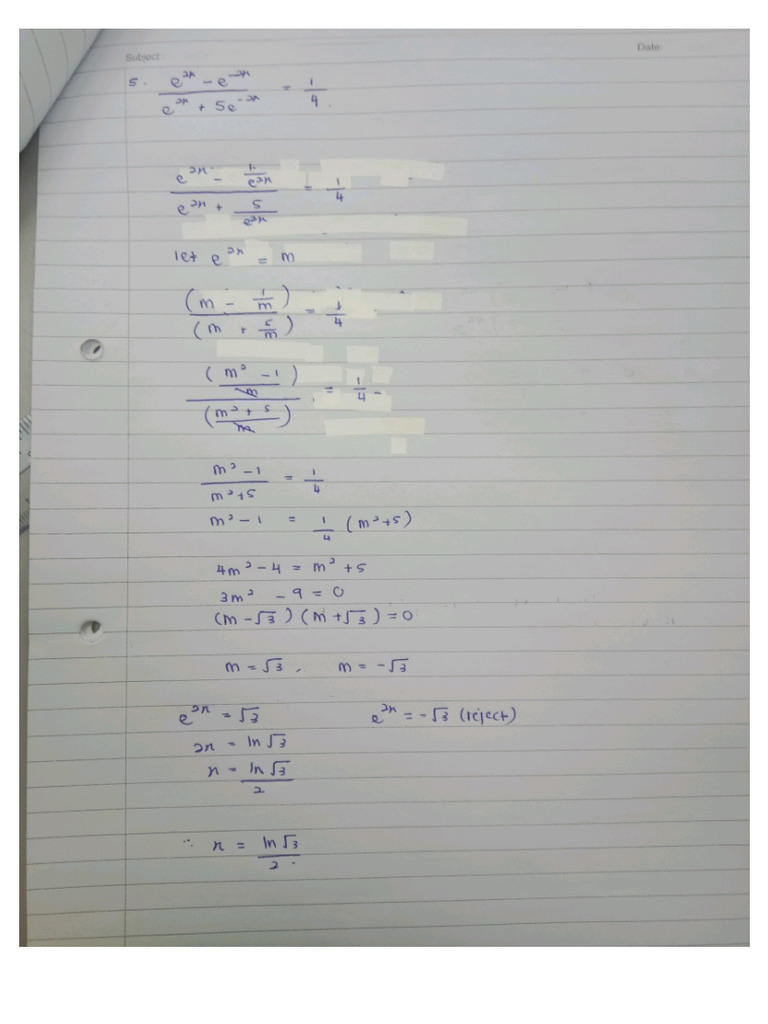 Subject:
Date:
5. (e^2x − e^-2x)/(e^2x + 5e^-2x) = 1/4.
(e^2x − 1/e^2x)/(e^2x + 5/e^2x) = 1/4
let e^2x = m
(m − 1/m)/(m + 5/m) = 1/4
((m² − 1)/m)/((m² + 5)/m) = 1/4
(m² − 1)/(m² + 5) = 1/4
m² − 1 = 1/4 (m² + 5)
4m² − 4 = m² + 5
3m² − 9 = 0
(m − √3)(m + √3) = 0
m = √3, m = −√3
e^2x = √3 e^2x = −√3 (reject)
2x = ln √3
x = ln √3/2
∴ x = ln √3/2.